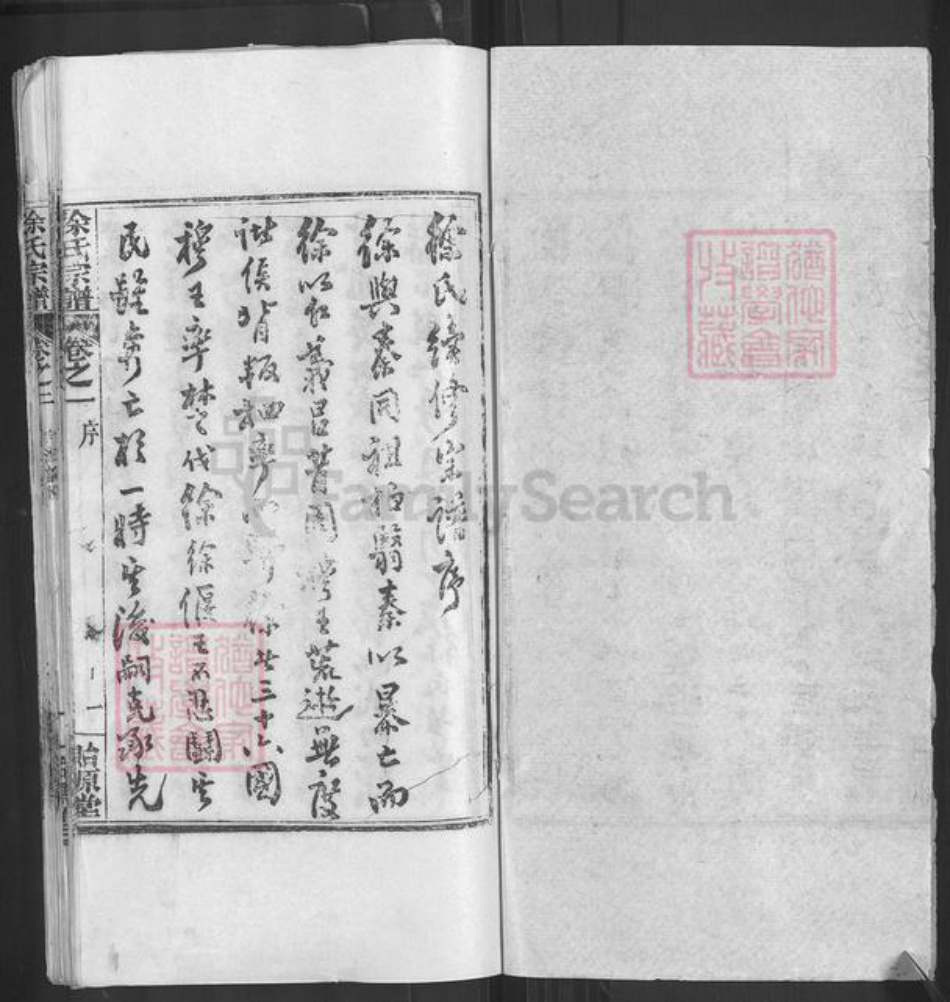 徐氏續修宗譜序
徐與秦同祖栢翳秦以暴亡而
徐以仁義昌昔周穆王荒遊無度
諸侯背叛相率而朝徐者三十六國
穆王率楚伐徐徐偃王不忍鬬其
民雖弃亡於一時其後嗣克承先
徐氏宗譜
卷之一
序
一
貽原堂
徐氏宗譜
卷之二
FamilySearch